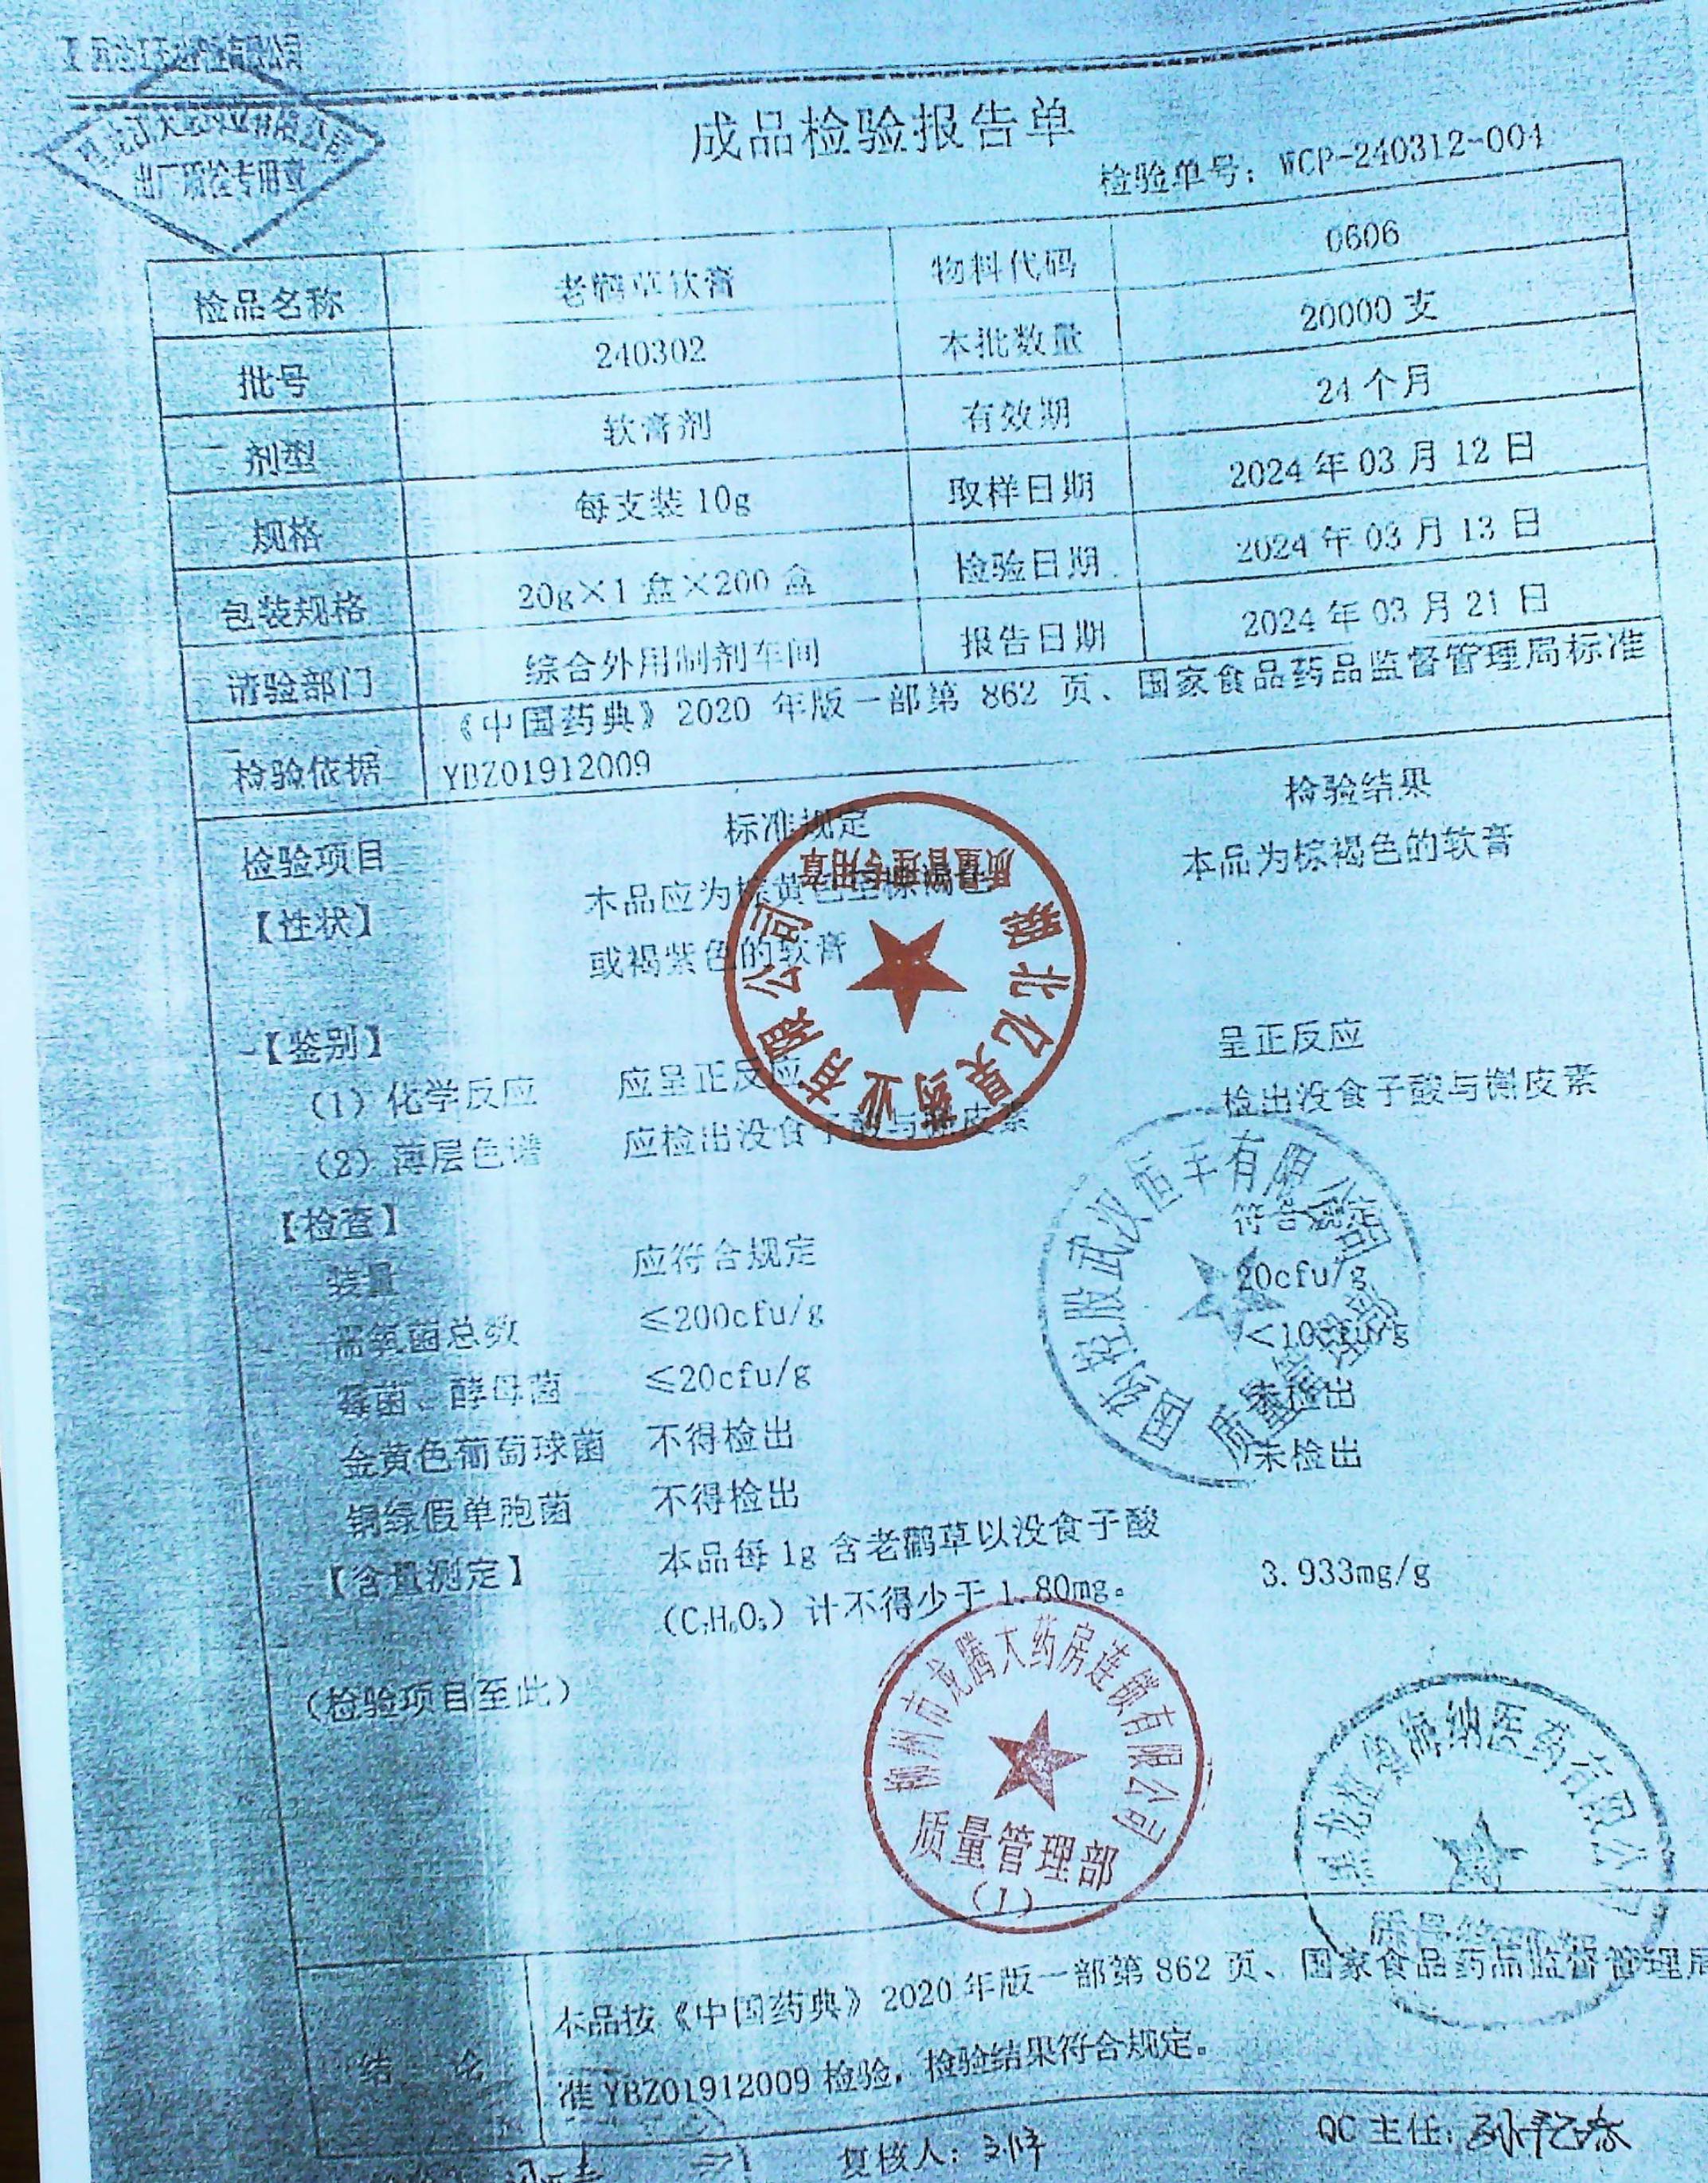 出厂质检专用章
成品检验报告单
检验单号：WCP-240312-004
检品名称 老鹳草软膏 物料代码 0606
批号 240302 本批数量 20000 支
剂型 软膏剂 有效期 24 个月
规格 每支装 10g 取样日期 2024 年 03 月 12 日
包装规格 20g×1 盒×200 盒 检验日期 2024 年 03 月 13 日
请验部门 综合外用制剂车间 报告日期 2024 年 03 月 21 日
检验依据 《中国药典》2020 年版一部第 862 页、国家食品药品监督管理局标准
YBZ01912009
检验项目 标准规定 检验结果
【性状】 本品应为棕黄色至棕褐色 本品为棕褐色的软膏
或褐紫色的软膏
湖北亿昊药业有限公司
质量管理专用章
【鉴别】
（1）化学反应 应呈正反应 呈正反应
（2）薄层色谱 应检出没食子酸与槲皮素 检出没食子酸与槲皮素
【检查】
装量 应符合规定 符合规定
需氧菌总数 ≤200cfu/g 20cfu/g
霉菌、酵母菌 ≤20cfu/g <10cfu/g
金黄色葡萄球菌 不得检出 未检出
铜绿假单胞菌 不得检出 未检出
国药控股武汉恒丰有限公司
质量管理部
【含量测定】 本品每 1g 含老鹳草以没食子酸 3.933mg/g
（C₇H₆O₅）计不得少于 1.80mg。
（检验项目至此）
柳州市龙腾大药房连锁有限公司
质量管理部
（1）
海纳医药有限公司
结 论 本品按《中国药典》2020 年版一部第 862 页、国家食品药品监督管理局
准 YBZ01912009 检验，检验结果符合规定。
复核人： QC 主任：